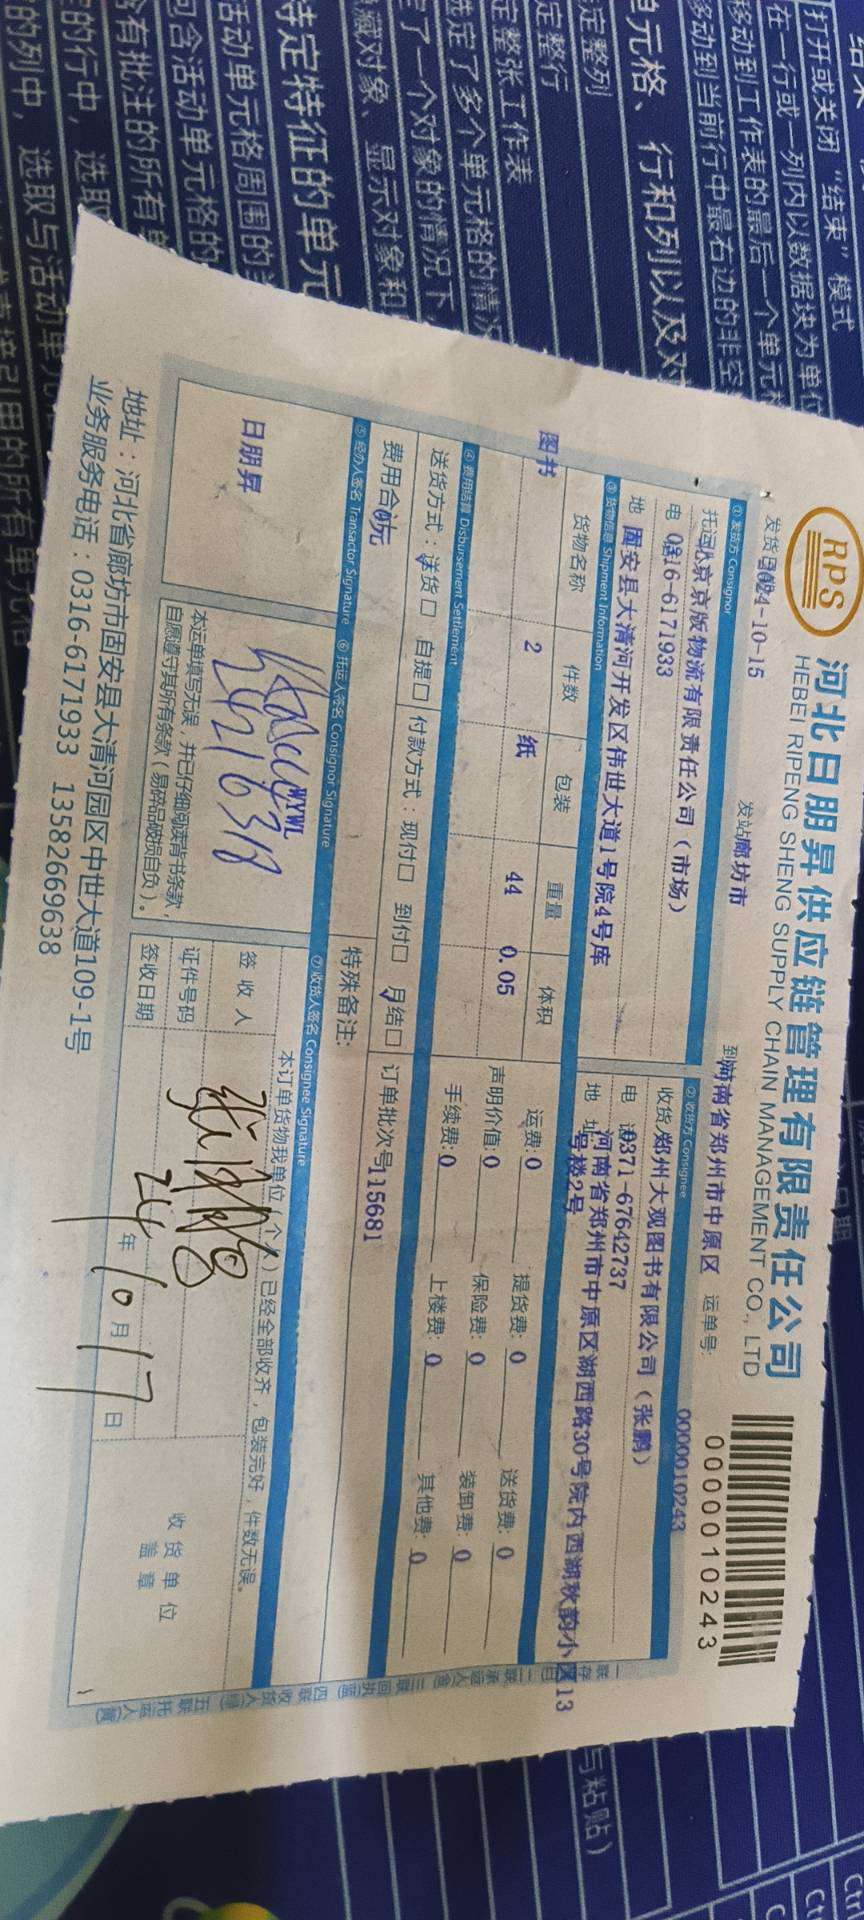 RPS
河北日朋昇供应链管理有限责任公司
HEBEI RIPENG SHENG SUPPLY CHAIN MANAGEMENT CO., LTD
0000010243
发货日期2024-10-15 发站廊坊市 到河南省郑州市中原区 运单号: 0000010243
①发货方 Consignor ②收货方 Consignee
托北京京版物流有限责任公司（市场） 收货郑州大观图书有限公司（张鹏）
电 0316-6171933 电 话0371-67642737
地 固安县大清河开发区伟世大道1号院4号库 地 址河南省郑州市中原区湖西路30号院内西湖秋韵小区13号楼2号
③货物信息 Shipment Information
货物名称 件数 包装 重量 体积
图书 2 纸 44 0.05
运费:0 提货费:0 送货费:0
声明价值:0 保险费:0 装卸费:0
手续费:0 上楼费:0 其他费:0
④费用结算 Disbursement Settlement
送货方式：送货□ 自提□ 付款方式：现付□ 到付□ 月结□ 订单批次号115681
费用合0元 特殊备注：
⑤经办人签名 Transactor Signature ⑥托运人签名 Consignor Signature ⑦收货人签名 Consignee Signature
日朋昇
WXYWL
本运单填写无误，并已仔细阅读背书条款，
自愿遵守其所有条款（易碎品破损自负）。
本订单货物我单位（个人）已经全部收齐，包装完好，件数无误。
签收人
证件号码
签收日期 24年10月17日
收货单位
盖章
地址：河北省廊坊市固安县大清河园区中世大道109-1号
业务服务电话：0316-6171933 13582669638
一联存 二联承运人 三联回执 四联收货人 五联托运人
结束
打开或关闭“结束”模式
在一行或一列内以数据块为单位
移动到工作表的最后一个单元格
移动到当前行中最右边的非空
单元格、行和列以及对
选定整列
选定整行
选定整张工作表
选定了多个单元格的情况
定了一个对象的情况下
隐藏对象、显示对象和
特定特征的单元
活动单元格周围的
包含活动单元格的
含有批注的所有单
的行中，选取
的列中，选取与活动单元
直接引用的所有单元格
与粘贴）